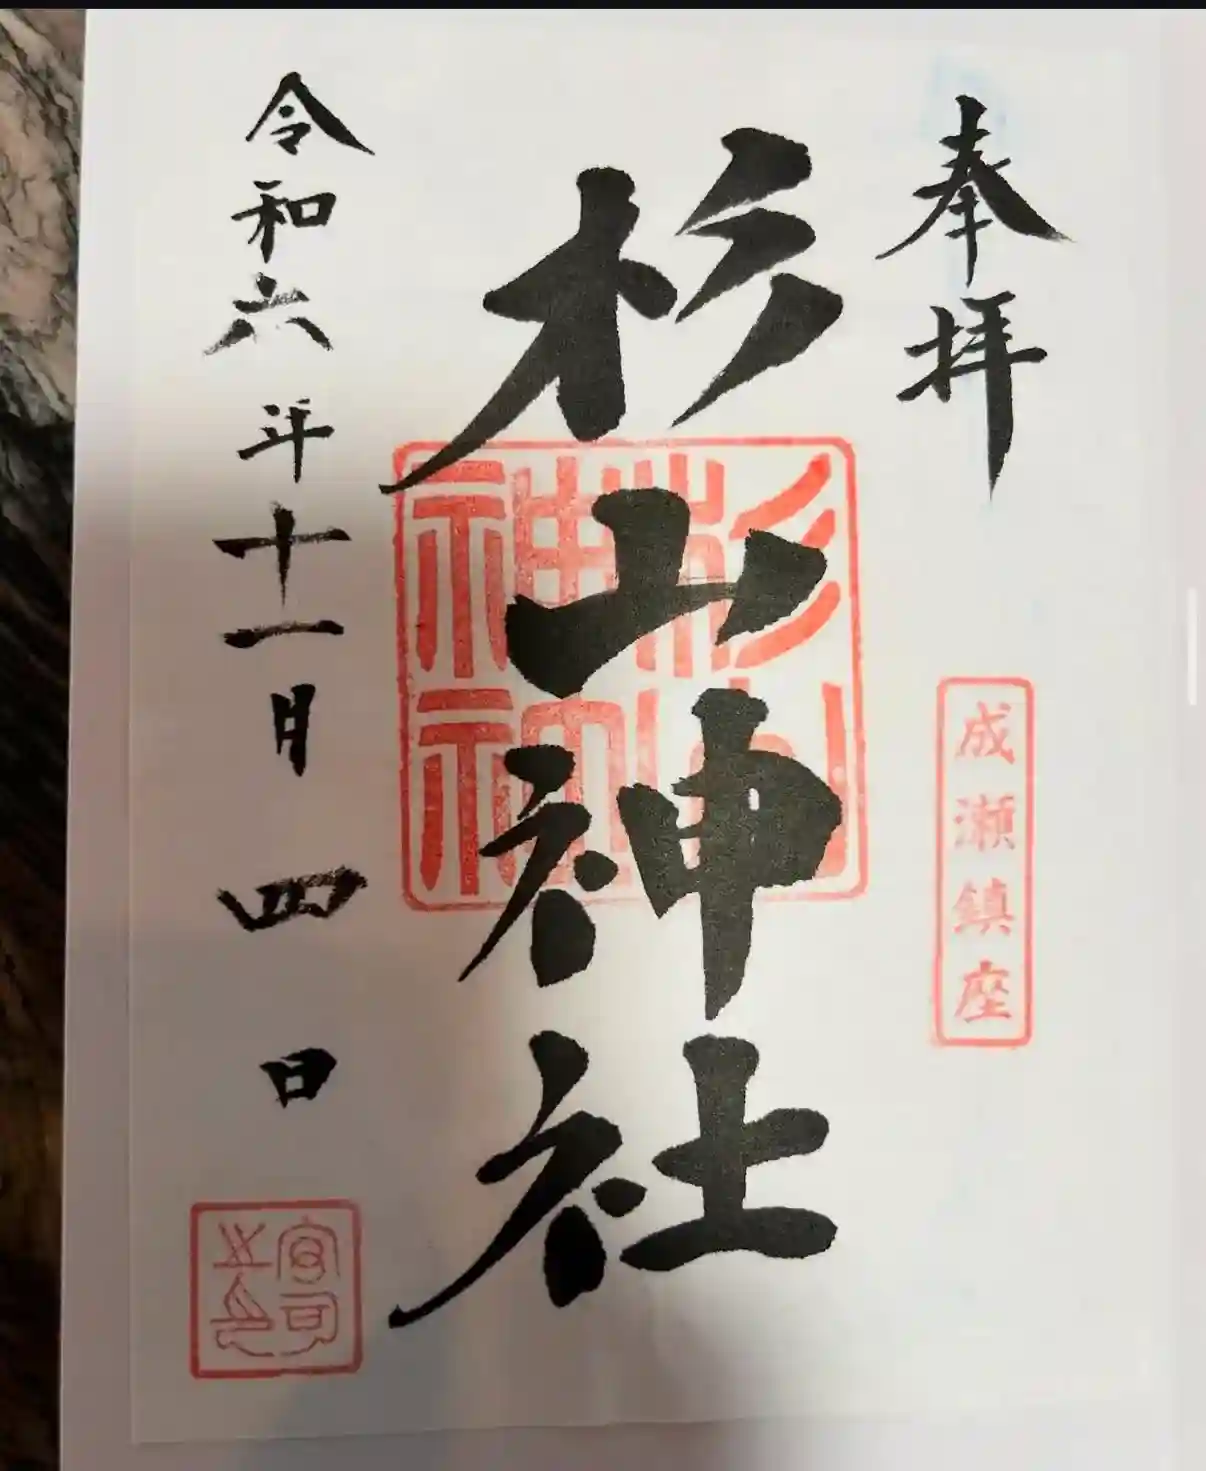 奉拝
成瀬鎮座
杉山神社
杉山
神社
令和六年十一月四日
宮司
之印